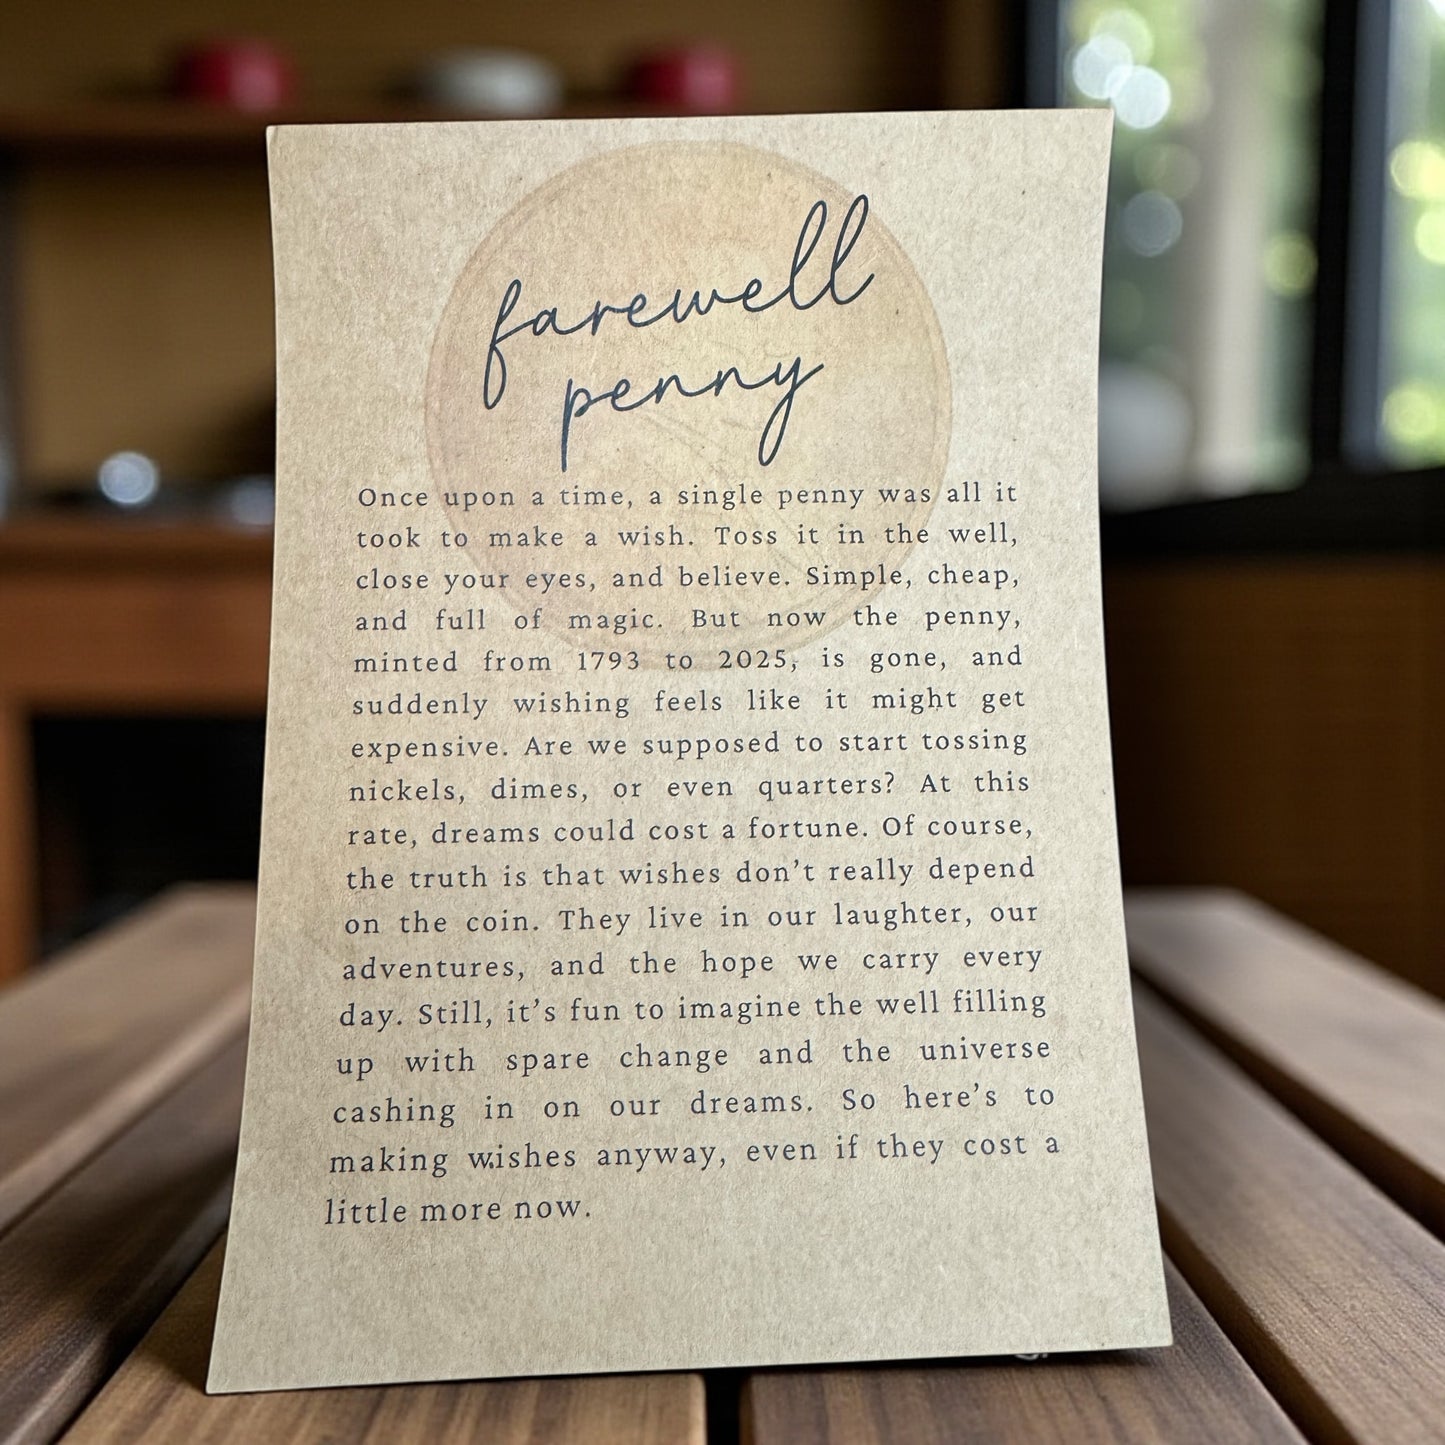 farewell
penny
Once upon a time, a single penny was all it
took to make a wish. Toss it in the well,
close your eyes, and believe. Simple, cheap,
and full of magic. But now the penny,
minted from 1793 to 2025, is gone, and
suddenly wishing feels like it might get
expensive. Are we supposed to start tossing
nickels, dimes, or even quarters? At this
rate, dreams could cost a fortune. Of course,
the truth is that wishes don’t really depend
on the coin. They live in our laughter, our
adventures, and the hope we carry every
day. Still, it’s fun to imagine the well filling
up with spare change and the universe
cashing in on our dreams. So here’s to
making wishes anyway, even if they cost a
little more now.